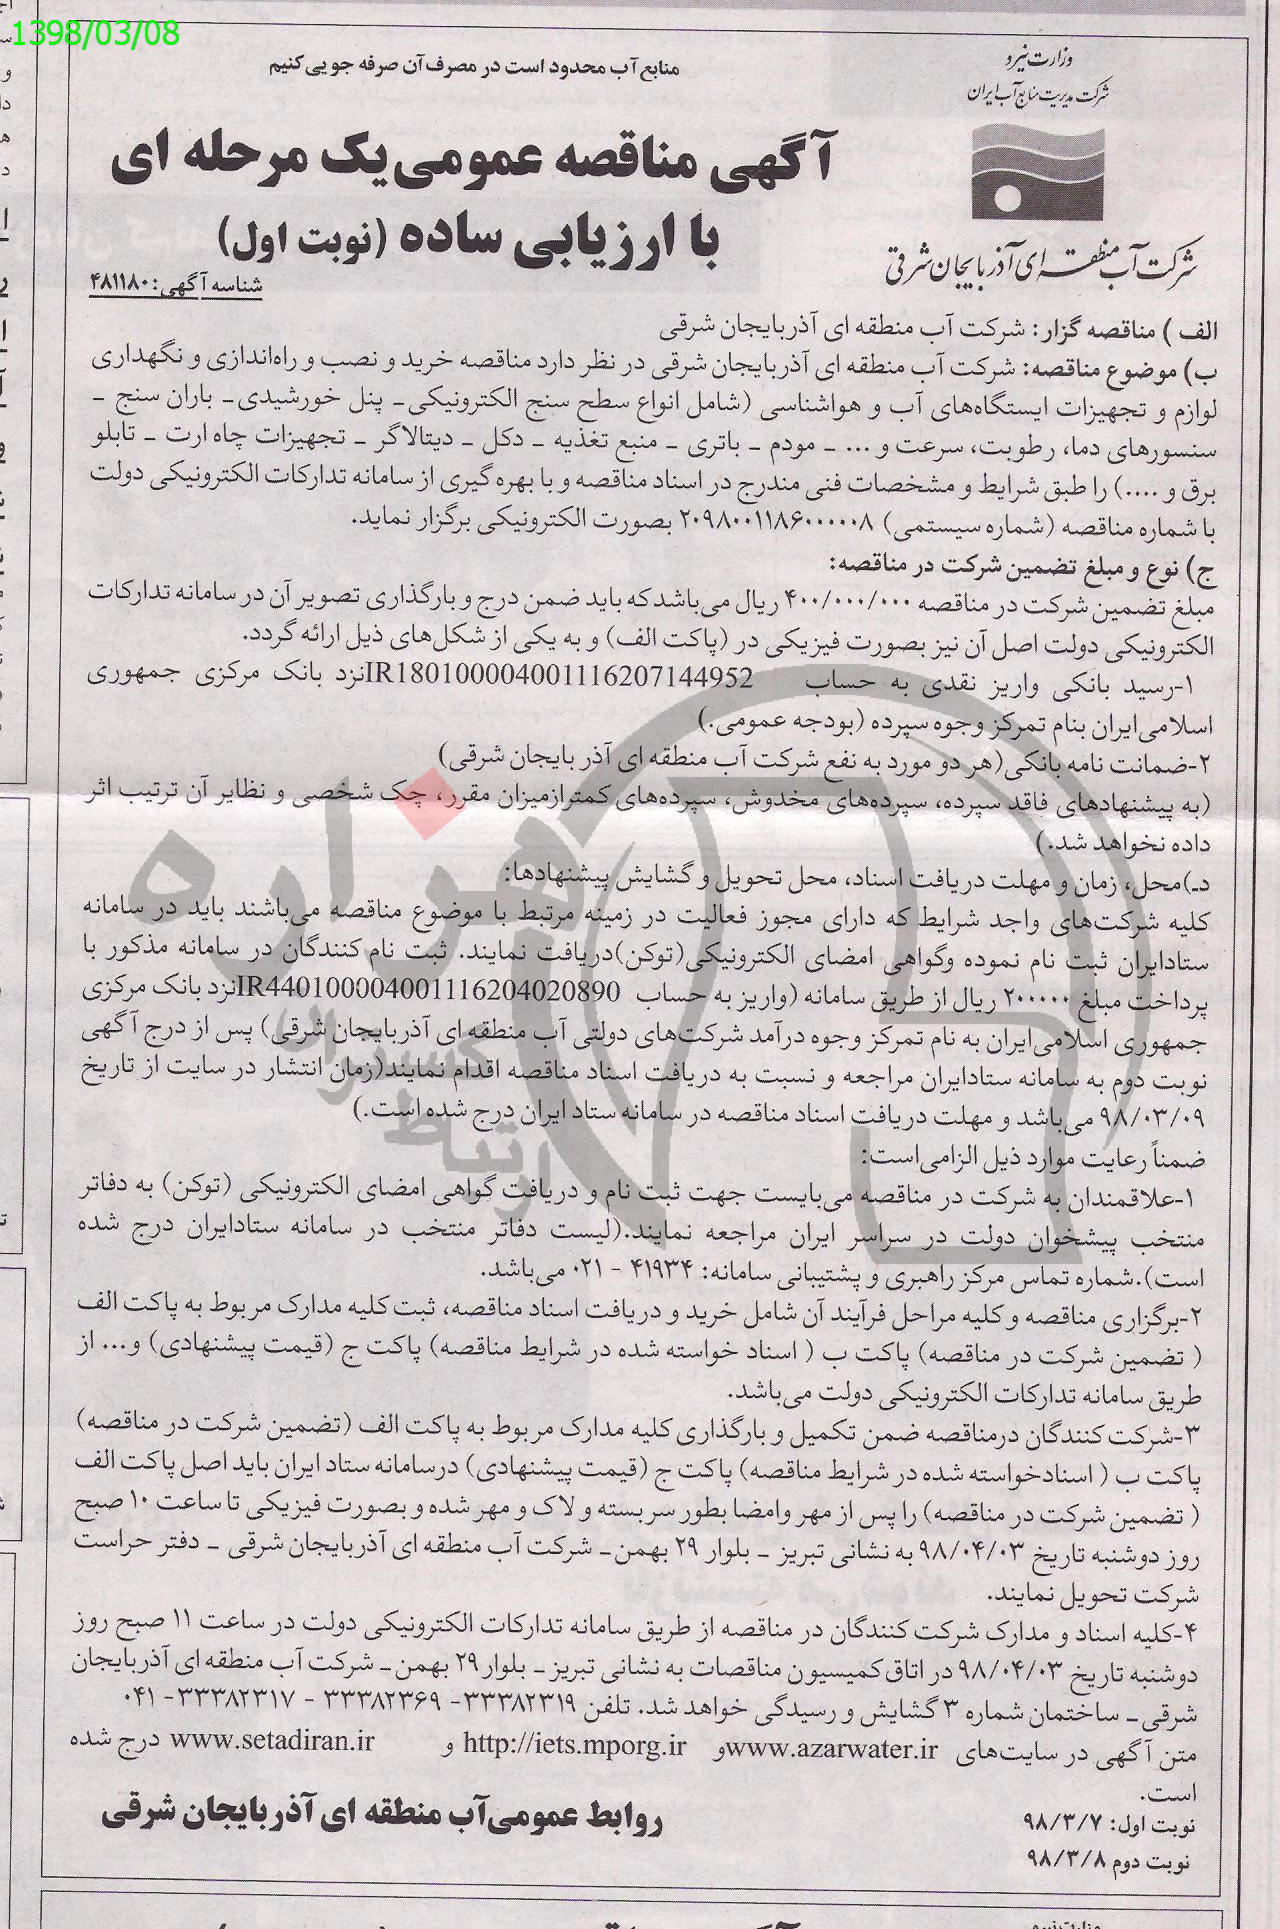 1398/03/08
وزارت نیرو
شرکت مدیریت منابع آب ایران
شرکت آب منطقه ای آذربایجان شرقی
منابع آب محدود است در مصرف آن صرفه جویی کنیم
آگهی مناقصه عمومی یک مرحله ای
با ارزیابی ساده (نوبت اول)
شناسه آگهی: ۴۸۱۱۸۰
الف ) مناقصه گزار: شرکت آب منطقه ای آذربایجان شرقی
ب) موضوع مناقصه: شرکت آب منطقه ای آذربایجان شرقی در نظر دارد مناقصه خرید و نصب و راه‌اندازی و نگهداری
لوازم و تجهیزات ایستگاه‌های آب و هواشناسی (شامل انواع سطح سنج الکترونیکی– پنل خورشیدی– باران سنج –
سنسورهای دما، رطوبت، سرعت و ... – مودم – باتری – منبع تغذیه – دکل – دیتالاگر – تجهیزات چاه ارت – تابلو
برق و ....) را طبق شرایط و مشخصات فنی مندرج در اسناد مناقصه و با بهره گیری از سامانه تدارکات الکترونیکی دولت
با شماره مناقصه (شماره سیستمی) ۲۰۹۸۰۰۱۱۸۶۰۰۰۰۰۸ بصورت الکترونیکی برگزار نماید.
ج) نوع و مبلغ تضمین شرکت در مناقصه:
مبلغ تضمین شرکت در مناقصه ۴۰۰/۰۰۰/۰۰۰ ریال می‌باشد که باید ضمن درج و بارگذاری تصویر آن در سامانه تدارکات
الکترونیکی دولت اصل آن نیز بصورت فیزیکی در (پاکت الف) و به یکی از شکل‌های ذیل ارائه گردد.
۱-رسید بانکی واریز نقدی به حساب IR180100004001116207144952نزد بانک مرکزی جمهوری
اسلامی‌ایران بنام تمرکز وجوه سپرده (بودجه عمومی.)
۲-ضمانت نامه بانکی(هر دو مورد به نفع شرکت آب منطقه ای آذر بایجان شرقی)
(به پیشنهادهای فاقد سپرده، سپرده‌های مخدوش، سپرده‌های کمترازمیزان مقرر، چک شخصی و نظایر آن ترتیب اثر
داده نخواهد شد.)
د-)محل، زمان و مهلت دریافت اسناد، محل تحویل و گشایش پیشنهادها:
کلیه شرکت‌های واجد شرایط که دارای مجوز فعالیت در زمینه مرتبط با موضوع مناقصه می‌باشند باید در سامانه
ستادایران ثبت نام نموده وگواهی امضای الکترونیکی(توکن)دریافت نمایند. ثبت نام کنندگان در سامانه مذکور با
پرداخت مبلغ ۲۰۰۰۰۰ ریال از طریق سامانه (واریز به حساب IR440100004001116204020890نزد بانک مرکزی
جمهوری اسلامی‌ایران به نام تمرکز وجوه درآمد شرکت‌های دولتی آب منطقه ای آذربایجان شرقی) پس از درج آگهی
نوبت دوم به سامانه ستادایران مراجعه و نسبت به دریافت اسناد مناقصه اقدام نمایند(زمان انتشار در سایت از تاریخ
۹۸/۰۳/۰۹ می‌باشد و مهلت دریافت اسناد مناقصه در سامانه ستاد ایران درج شده است.)
ضمناً رعایت موارد ذیل الزامی‌است:
۱-علاقمندان به شرکت در مناقصه می‌بایست جهت ثبت نام و دریافت گواهی امضای الکترونیکی (توکن) به دفاتر
منتخب پیشخوان دولت در سراسر ایران مراجعه نمایند.(لیست دفاتر منتخب در سامانه ستادایران درج شده
است).شماره تماس مرکز راهبری و پشتیبانی سامانه: ۴۱۹۳۴ - ۰۲۱ می‌باشد.
۲-برگزاری مناقصه و کلیه مراحل فرآیند آن شامل خرید و دریافت اسناد مناقصه، ثبت کلیه مدارک مربوط به پاکت الف
( تضمین شرکت در مناقصه) پاکت ب ( اسناد خواسته شده در شرایط مناقصه) پاکت ج (قیمت پیشنهادی) و... از
طریق سامانه تدارکات الکترونیکی دولت می‌باشد.
۳-شرکت کنندگان درمناقصه ضمن تکمیل و بارگذاری کلیه مدارک مربوط به پاکت الف (تضمین شرکت در مناقصه)
پاکت ب ( اسنادخواسته شده در شرایط مناقصه) پاکت ج (قیمت پیشنهادی) درسامانه ستاد ایران باید اصل پاکت الف
( تضمین شرکت در مناقصه) را پس از مهر وامضا بطور سر بسته و لاک و مهر شده و بصورت فیزیکی تا ساعت ۱۰ صبح
روز دوشنبه تاریخ ۹۸/۰۴/۰۳ به نشانی تبریز – بلوار ۲۹ بهمن– شرکت آب منطقه ای آذربایجان شرقی – دفتر حراست
شرکت تحویل نمایند.
۴-کلیه اسناد و مدارک شرکت کنندگان در مناقصه از طریق سامانه تدارکات الکترونیکی دولت در ساعت ۱۱ صبح روز
دوشنبه تاریخ ۹۸/۰۴/۰۳ در اتاق کمیسیون مناقصات به نشانی تبریز – بلوار ۲۹ بهمن– شرکت آب منطقه ای آذربایجان
شرقی– ساختمان شماره ۳ گشایش و رسیدگی خواهد شد. تلفن ۳۳۳۸۲۳۱۹- ۳۳۳۸۲۳۶۹ - ۳۳۳۸۲۳۱۷- ۰۴۱
متن آگهی در سایت‌های www.azarwater.irو http://iets.mporg.ir و www.setadiran.ir درج شده
است.
نوبت اول: ۹۸/۳/۷
نوبت دوم ۹۸/۳/۸
روابط عمومی‌آب منطقه ای آذربایجان شرقی